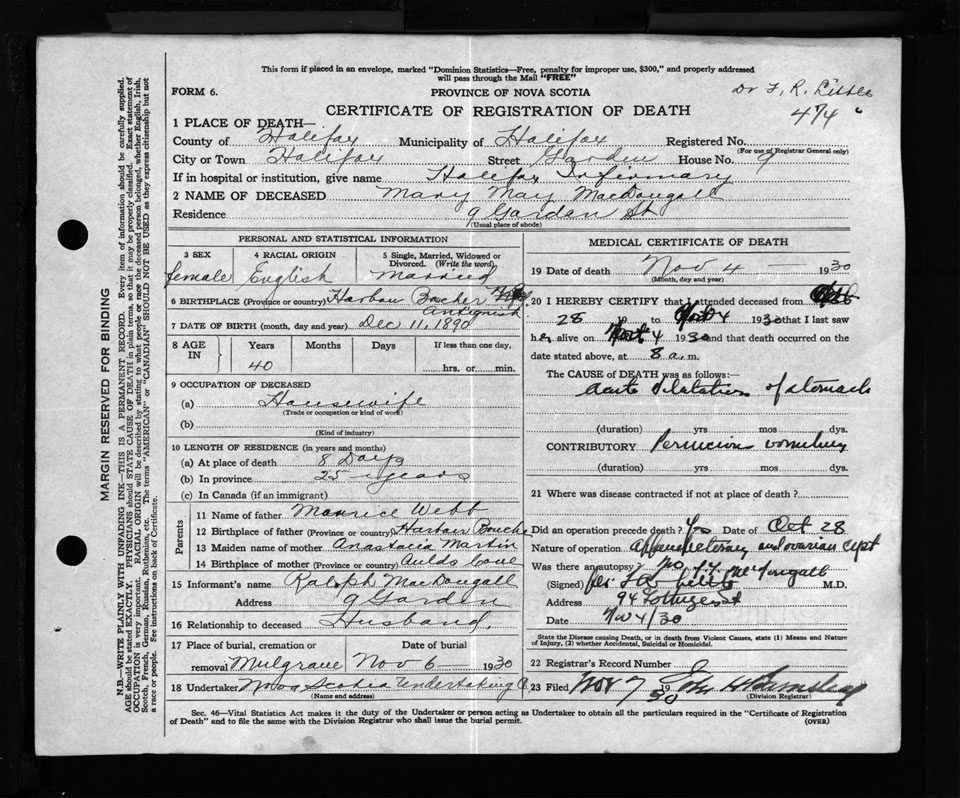 This form if placed in an envelope, marked "Dominion Statistics—Free, penalty for improper use, $300," and properly addressed
will pass through the Mail "FREE"
FORM 6.
PROVINCE OF NOVA SCOTIA
Dr F. R. Little
474
CERTIFICATE OF REGISTRATION OF DEATH
1 PLACE OF DEATH—
County of Halifax Municipality of Halifax Registered No.
(For use of Registrar General only)
City or Town Halifax Street Garden House No. 9
If in hospital or institution, give name Halifax Infirmary
2 NAME OF DECEASED Mary May MacDougall
Residence 9 Garden St
(Usual place of abode)
PERSONAL AND STATISTICAL INFORMATION
3 SEX 4 RACIAL ORIGIN 5 Single, Married, Widowed or Divorced. (Write the word)
female English Married
6 BIRTHPLACE (Province or country) Harbour Boucher
Antigonish
7 DATE OF BIRTH (month, day and year) Dec 11, 1890
8 AGE IN Years Months Days If less than one day,
40 hrs. or min.
9 OCCUPATION OF DECEASED
(a) Housewife
(Trade or occupation or kind of work)
(b)
(Kind of industry)
10 LENGTH OF RESIDENCE (in years and months)
(a) At place of death 8 Days
(b) In province 25 years
(c) In Canada (if an immigrant)
Parents
11 Name of father Maurice Webb
12 Birthplace of father (Province or country) Harbour Bouche
13 Maiden name of mother Anastacia Martin
14 Birthplace of mother (Province or country) Aulds Cove
15 Informant's name Ralph MacDougall
Address 9 Garden
16 Relationship to deceased Husband,
17 Place of burial, cremation or removal Date of burial
Mulgrave Nov 6 1930
18 Undertaker Nova Scotia Undertaking Co
(Name and address)
MEDICAL CERTIFICATE OF DEATH
19 Date of death Nov 4 — 1930
(Month, day and year)
20 I HEREBY CERTIFY that I attended deceased from Oct
28 to Nov 4 1930 that I last saw
her alive on Nov 4 1930 and that death occurred on the
date stated above, at 8 a.m.
The CAUSE OF DEATH was as follows:—
Acute dilatation of stomach
(duration) yrs mos dys.
CONTRIBUTORY Pernicious vomiting
(duration) yrs mos dys.
21 Where was disease contracted if not at place of death?
Did an operation precede death? Yes Date of Oct 28
Nature of operation Appendectomy and ovarian cyst
Was there an autopsy? no
(Signed) M.D.
Address 94
Date Nov 4/30
State the Disease causing Death, or in death from Violent Causes, state (1) Means and Nature
of Injury, (2) whether Accidental, Suicidal or Homicidal.
22 Registrar's Record Number
23 Filed Nov 7 1930
(Division Registrar)
Sec. 46—Vital Statistics Act makes it the duty of Undertaker or person acting as Undertaker to obtain all the particulars required in the "Certificate of Registration
of Death" and to file the same with the Division Registrar who shall issue the burial permit.
(OVER)
MARGIN RESERVED FOR BINDING
N.B.—WRITE PLAINLY WITH UNFADING INK—THIS IS A PERMANENT RECORD. Every item of information should be carefully supplied.
AGE should be stated EXACTLY. PHYSICIANS should STATE CAUSE OF DEATH in plain terms, so that it may be properly classified. Exact statement of
OCCUPATION is very important. RACIAL ORIGIN will be described by stating to what people or race the deceased person belonged, whether English, Irish,
Scotch, French, German, Russian, Ruthenian, etc. The terms "AMERICAN" or "CANADIAN" SHOULD NOT BE USED as they express citizenship but not
a race or people. See instructions on back of Certificate.